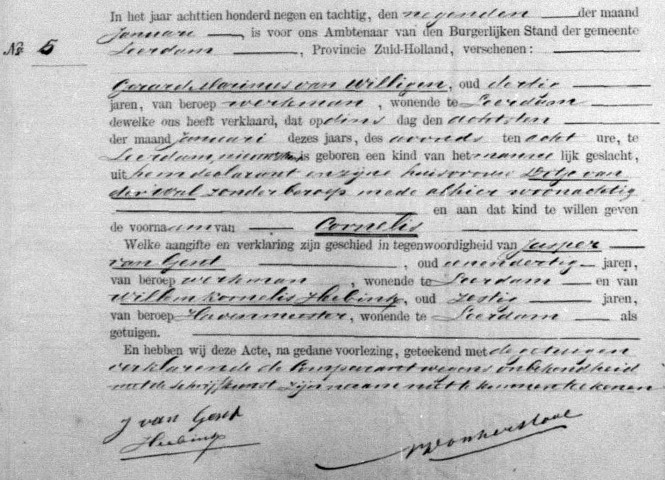 In het jaar achttien honderd negen en tachtig, den negenden der maand
No. 5
Januari, is voor ons Ambtenaar van den Burgerlijken Stand der gemeente
Leerdam, Provincie Zuid-Holland, verschenen:
Gerard Marinus van Willigen, oud dertig
jaren, van beroep werkman, wonende te Leerdam
dewelke ons heeft verklaard, dat op dins dag den achtsten
der maand Januari dezes jaars, des avonds ten acht ure, te
Leerdam, is geboren een kind van het manne lijk geslacht,
uit hem declarant en zijne huisvrouw van
der Wal zonder beroep mede alhier woonachtig
en aan dat kind te willen geven
de voornaam van Cornelis
Welke aangifte en verklaring zijn geschied in tegenwoordigheid van Jasper
van Gent, oud eenendertig jaren,
van beroep werkman, wonende te Leerdam en van
Willem Kornelis Hebing, oud zestig jaren,
van beroep Havenmeester, wonende te Leerdam als
getuigen.
En hebben wij deze Acte, na gedane voorlezing, geteekend met de getuigen
verklarende de Comparant wegens onbekendheid
met de schrijfkunst zijn naam niet te kunnen teekenen
J van Gent
Hebing